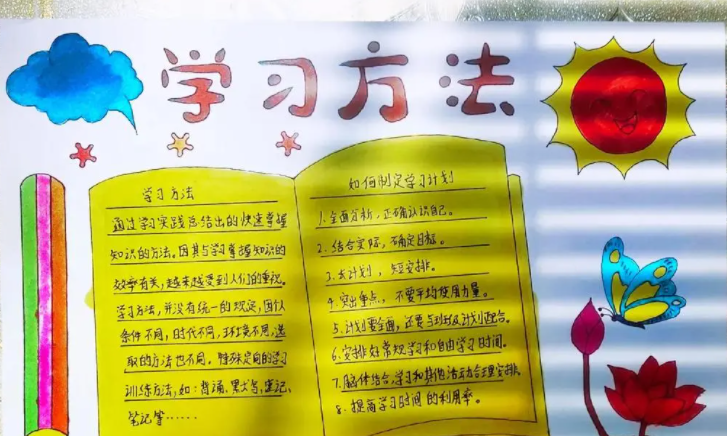 学习方法
学习方法
通过学习实践总结出的快速掌握
知识的方法。因其与学习掌握知识的
效率有关，越来越受到人们的重视。
学习方法，并没有统一的规定，因个人
条件不同，时代不同，环境不同，选
取的方法也不同。特殊定用的学习
训练方法，如：背诵、速记、
笔记等……
如何制定学习计划
1.全面分析，正确认识自己。
2.结合实际，确定目标。
3.长计划，短安排。
4.突出重点，不要平均使用力量。
5.计划要全面，还要与班级计划配合。
6.安排好常规学习和自由学习时间。
7.脑体结合，学习和其他活动合理安排
8.提高学习时间的利用率。